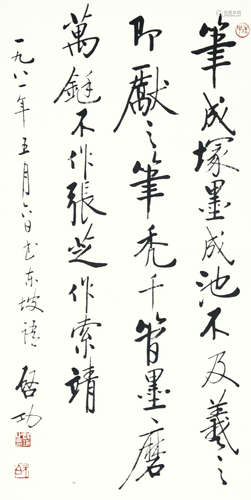 筆成塚墨成池不及羲之
即獻之筆秃千管墨磨
萬鋌不作張芝作索靖
一九八一年五月六日书东坡語
啓功